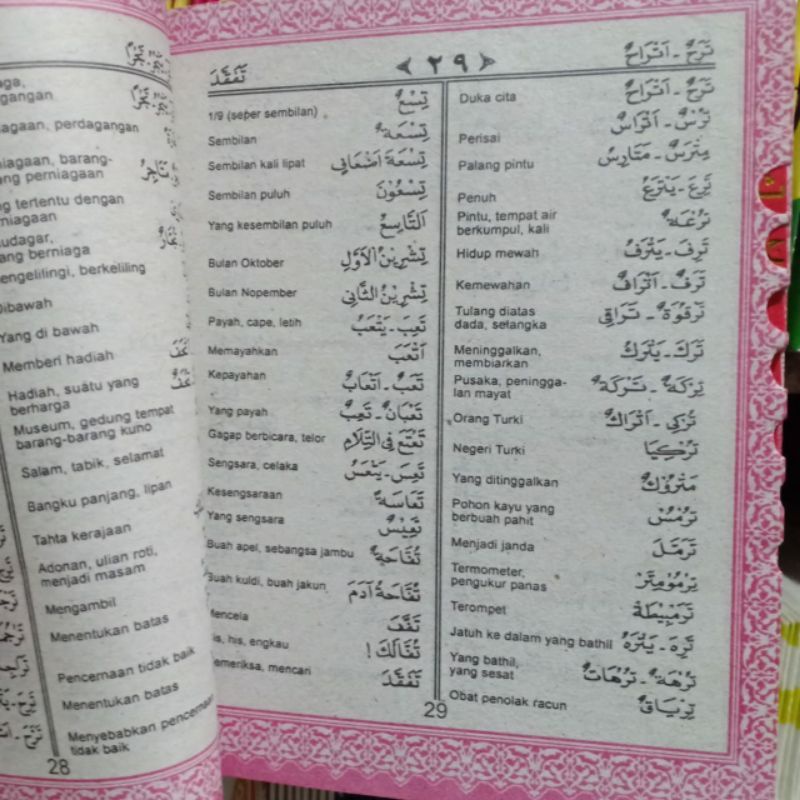 aga,
gangan
agaan, perdagangan
iagaan, barang-
ng perniagaan
g tertentu dengan
niagaan
udagar,
ang berniaga
engelilingi, berkeliling
Dibawah
Yang di bawah
Memberi hadiah
Hadiah, suatu yang
berharga
Museum, gedung tempat
barang-barang kuno
Salam, tabik, selamat
Bangku panjang, lipan
Tahta kerajaan
Adonan, ulian roti,
menjadi masam
Mengambil
Menentukan batas
Pencernaan tidak baik
Menentukan batas
Menyebabkan pencernaan
tidak baik
28
تَرَحٌ - اَتْرَاحٌ
٢٩
تَفَقَّدَ
تَرَحٌ - اَتْرَاحٌ Duka cita
تُرْسٌ - اَتْرَاسٌ Perisai
مِتْرَسٌ - مَتَارِسُ Palang pintu
تَرِعَ - يَتْرَعُ Penuh
تُرْعَةٌ Pintu, tempat air
berkumpul, kali
تَرِفَ - يَتْرَفُ Hidup mewah
تَرَفٌ - اَتْرَافٌ Kemewahan
تَرْقُوَةٌ - تَرَاقِي Tulang diatas
dada, selangka
تَرَكَ - يَتْرُكُ Meninggalkan,
membiarkan
تِرْكَةٌ - تَرِكَةٌ Pusaka, peningga-
lan mayat
تُرْكِي - اَتْرَاكٌ Orang Turki
تُرْكِيَا Negeri Turki
مَتْرُوْكٌ Yang ditinggalkan
تُرْمُسٌ Pohon kayu yang
berbuah pahit
تَرَمَّلَ Menjadi janda
تِرْمُومِتَرْ Termometer,
pengukur panas
تَرَمْبِيْطَةٌ Terompet
تَرِهَ - يَتْرَهُ Jatuh ke dalam yang bathil
تُرَّهَةٌ - تُرَّهَاتٌ Yang bathil,
yang sesat
تِرْيَاقٌ Obat penolak racun
تُسْعٌ 1/9 (seper sembilan)
تِسْعَةٌ Sembilan
تِسْعَةَ اَضْعَافٍ Sembilan kali lipat
تِسْعُوْنَ Sembilan puluh
اَلتَّاسِعُ Yang kesembilan puluh
تِشْرِيْنُ الْاَوَّلِ Bulan Oktober
تِشْرِيْنُ الثَّانِى Bulan Nopember
تَعِبَ - يَتْعَبُ Payah, cape, letih
اَتْعَبَ Memayahkan
تَعَبٌ - اَتْعَابٌ Kepayahan
تَعْبَانٌ - تَعِبٌ Yang payah
تَعْتَعَ فِى الْكَلَامِ Gagap berbicara, telor
تَعِسَ - يَتْعَسُ Sengsara, celaka
تَعَاسَةٌ Kesengsaraan
تَعِيْسٌ Yang sengsara
تُفَّاحَةٌ Buah apel, sebangsa jambu
تُفَّاحَةُ آدَمَ Buah kuldi, buah jakun
تَفَّفَ Mencela
تُفًّالَكَ ! is, his, engkau
تَفَقَّدَ emeriksa, mencari
29